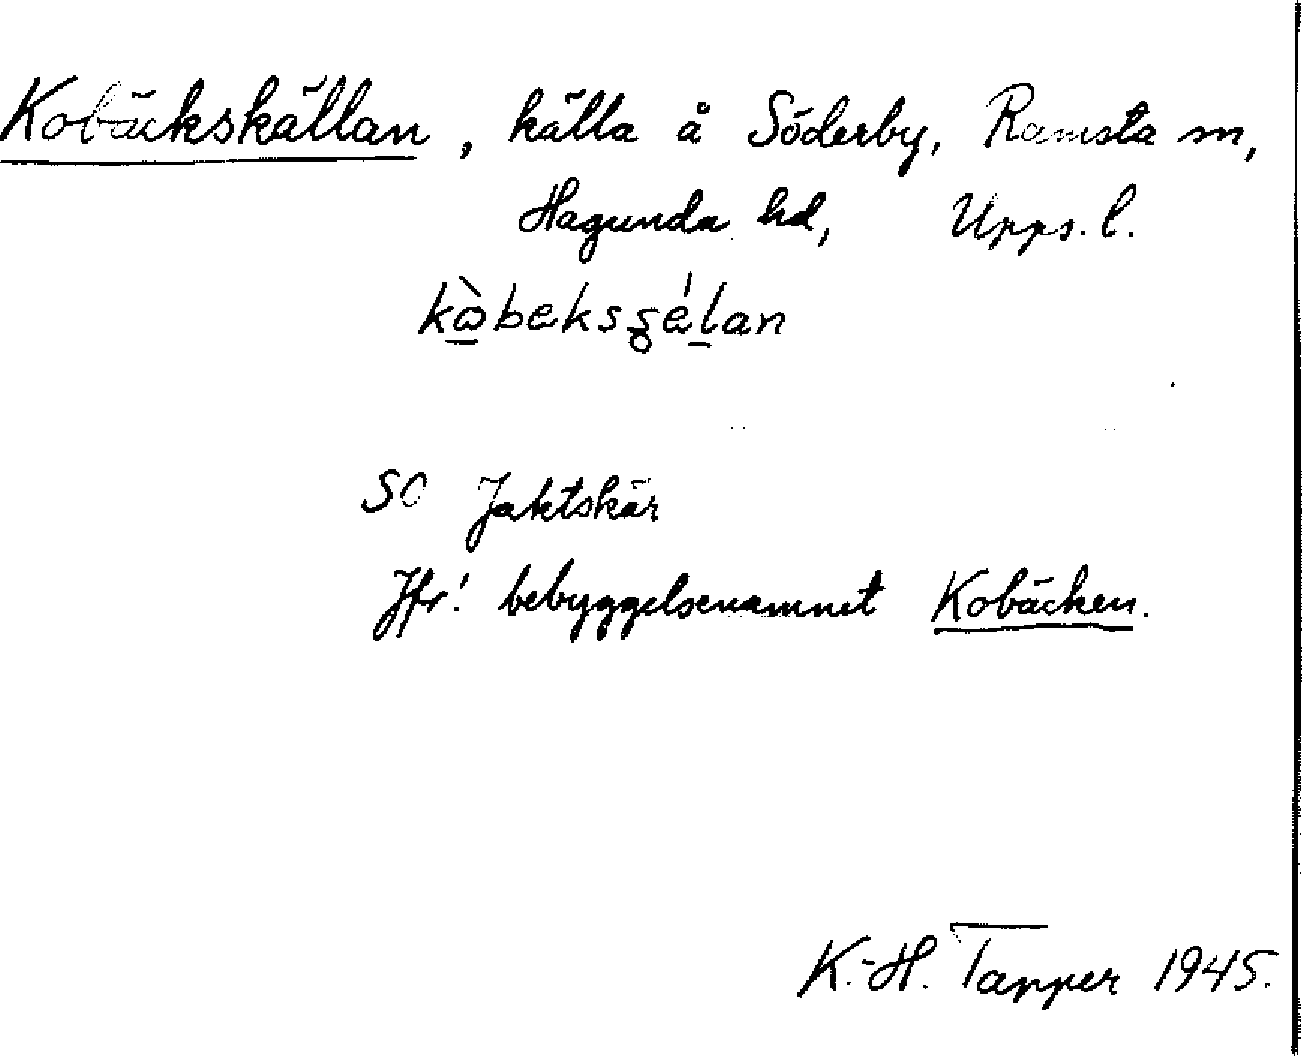 Kobäckskällan, källa å Söderby, Ramsta sn,
Hagunda hd, Upps. l.
SO Jaktskär
Jfr! bebyggelsenamnet Kobäcken.
K.-H. Tapper 1945.